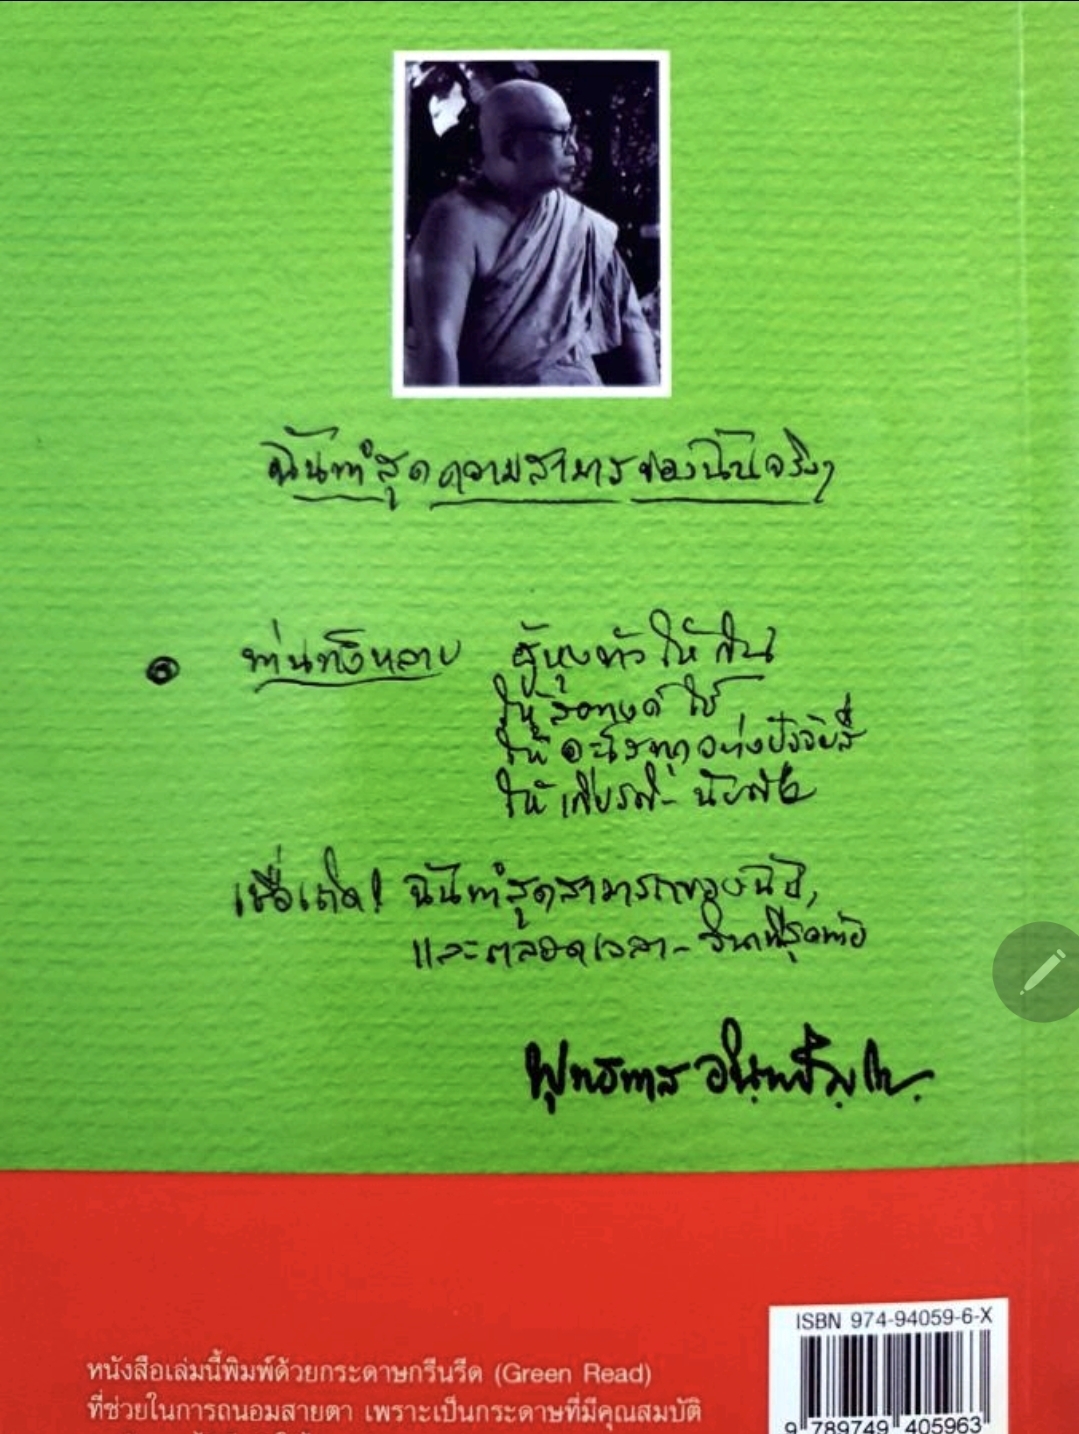 ฉันทำสุดความสามารถของฉันจริงๆ
ท่านทั้งหลาย ผู้หุงข้าวให้ฉัน
ให้สบงจีวร ใช้
ให้อะไรทุกอย่างปัจจัยสี่
ให้เกียรติ-
เชื่อเถิด! ฉันทำสุดสามารถของฉัน,
และตลอดเวลา-
พุทธทาส อินฺทปญฺโญ.
ISBN 974-94059-6-X
หนังสือเล่มนี้พิมพ์ด้วยกระดาษกรีนรีด (Green Read)
ที่ช่วยในการถนอมสายตา เพราะเป็นกระดาษที่มีคุณสมบัติ
9 789749 405963